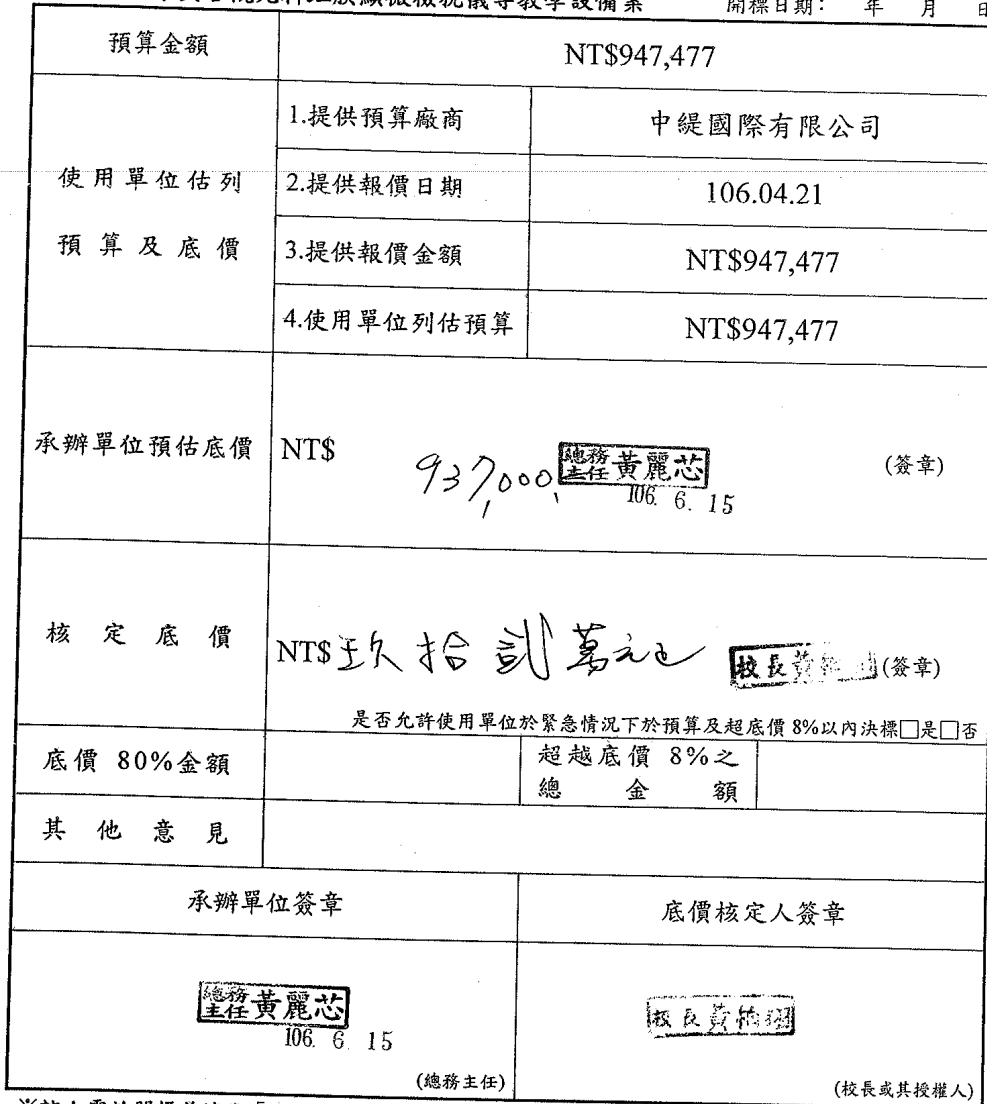 視光科 顯微檢視儀等教學設備案 開標日期: 年 月 日
預算金額 NT$947,477
使用單位估列
預算及底價
1.提供預算廠商 中緹國際有限公司
2.提供報價日期 106.04.21
3.提供報價金額 NT$947,477
4.使用單位列估預算 NT$947,477
承辦單位預估底價 NT$ 937,000, 總務主任 黃麗芯 (簽章)
106. 6. 15
核定底價 NT$ 玖拾貳萬元正 校長黃 (簽章)
是否允許使用單位於緊急情況下於預算及超底價8%以內決標□是□否
底價 80%金額 超越底價 8%之
總金額
其他意見
承辦單位簽章 底價核定人簽章
總務主任 黃麗芯 校長黃
106. 6. 15
(總務主任) (校長或其授權人)